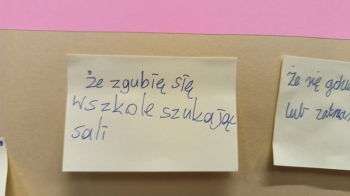 że zgubię się
w szkole szukając
sali
Że się
lub